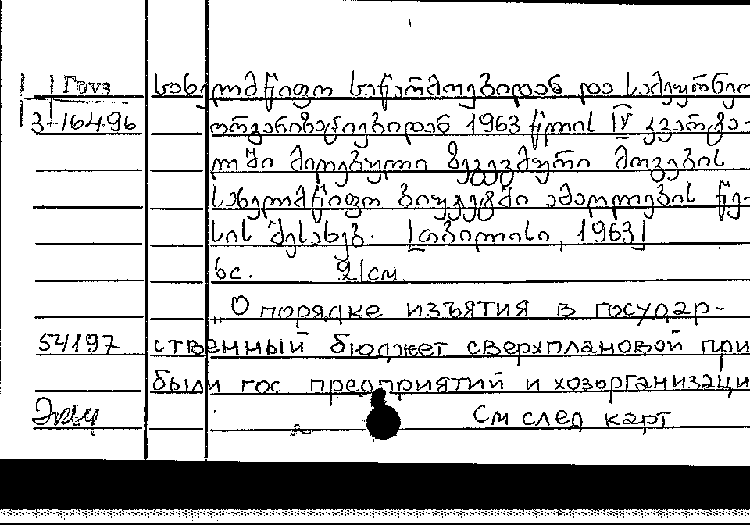 Груз სახელმწიფო საწარმოებიდან და სამეურნეო
3-16496 ორგანიზაციებიდან 1963 წლის IV კვარტა-
ლში მიღებული ზეგეგმური მოგების
სახელმწიფო ბიუჯეტში ამაღლების წე-
სის შესახებ. [თბილისი, 1963]
6с. 21см
„О порядке изъятия в государ-
54197 ственный бюджет сверхплановой при
были гос предприятий и хозорганизаци
См след карт